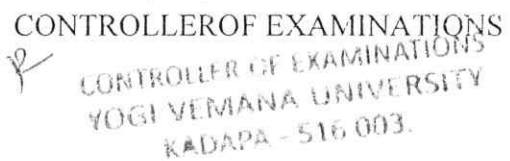 CONTROLLEROF EXAMINATIONS
CONTROLLER OF EXAMINATIONS
YOGI VEMANA UNIVERSITY
KADAPA - 516 003.